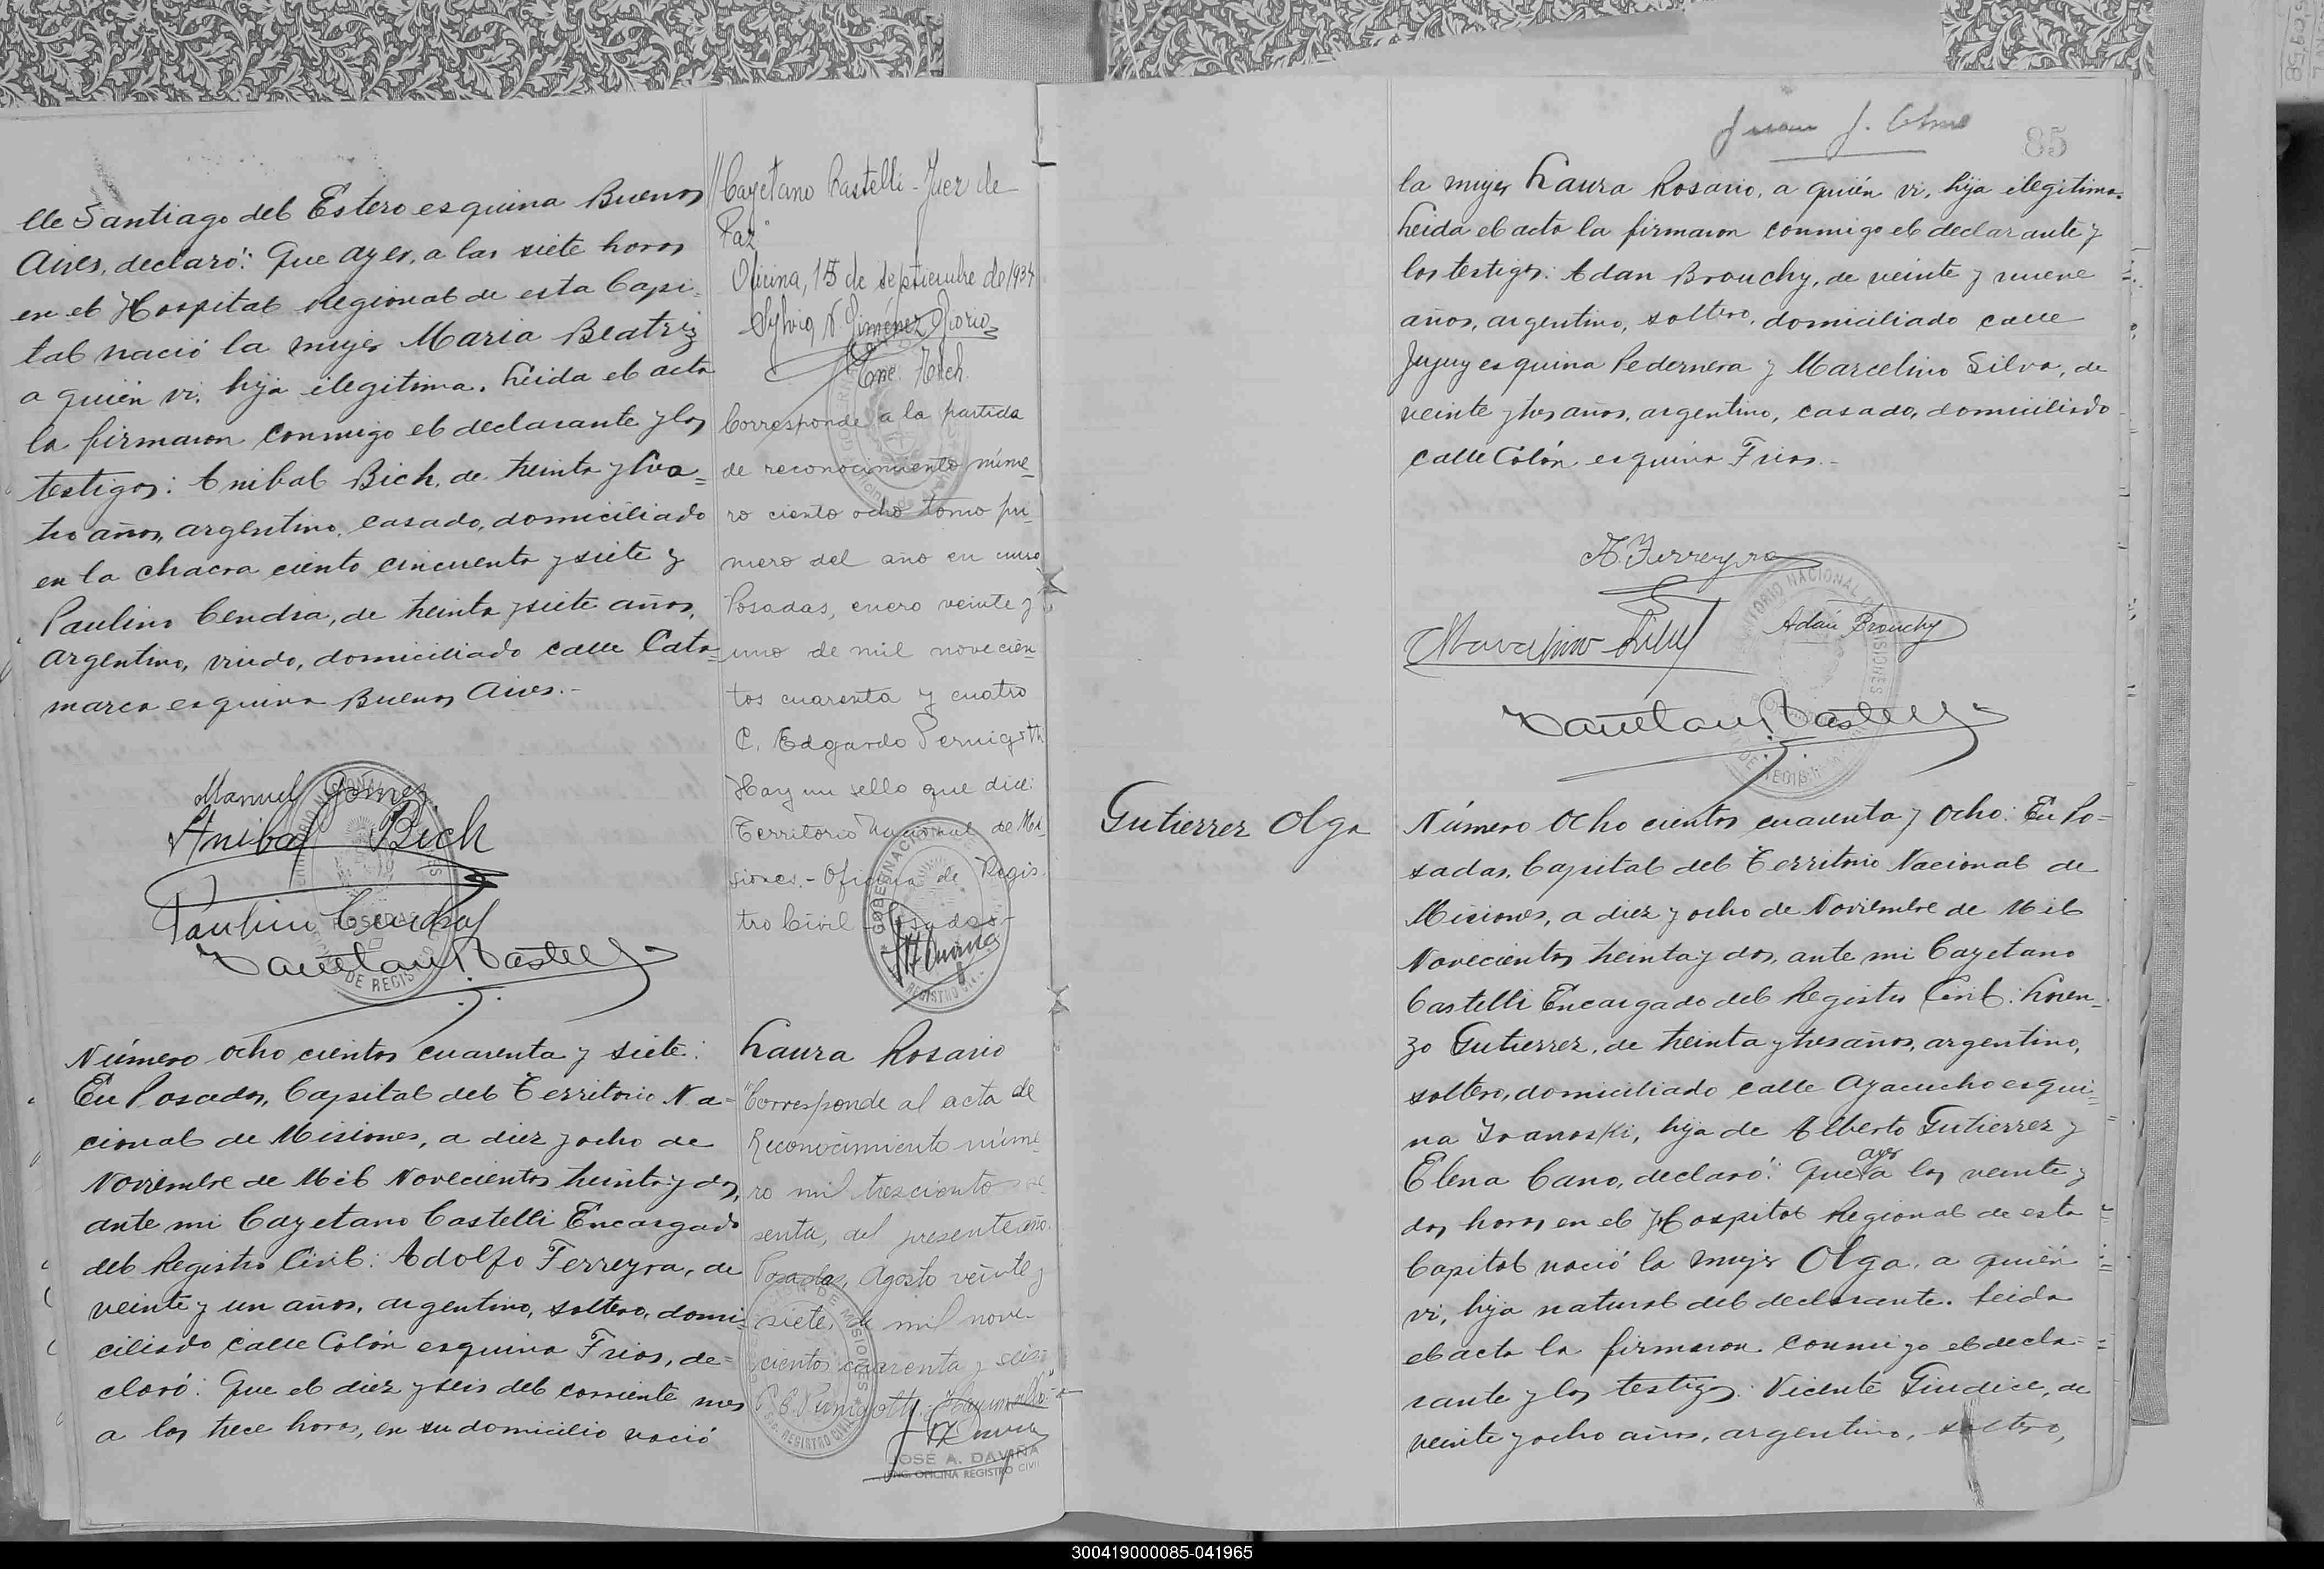 lle Santiago del Estero esquina Buenos
Aires, declaró: Que ayer, a las siete horas
en el Hospital Regional de esta Capi-
tal nació la mujer Maria Beatriz
a quién vi, hija ilegitima. Leida el acta
la firmaron conmigo el declarante y los
testigos: Anibal Bich, de treinta y cua=
tro años, argentino, casado, domiciliado
en la chacra ciento cincuenta y siete y
Paulino Cendra, de treinta y siete años,
argentino, viudo, domiciliado calle Cata=
marca esquina Buenos Aires.-
Manuel Gomez
Anibal Bich
Paulino Cendra
Cayetano Castelli
Número ocho cientos cuarenta y siete:
En Posadas, Capital del Territorio Na=
cional de Misiones, a diez y ocho de
Noviembre de Mil Novecientos treinta y dos,
ante mi Cayetano Castelli Encargado
del Registro Civil: Adolfo Ferreyra, de
veinte y un años, argentino, soltero, domi=
ciliado calle Colón esquina Frias, de=
claró: Que el diez y seis del corriente mes
a las trece horas, en su domicilio nació
"Cayetano Castelli - Juez de
Paz"
Oficina, 15 de septiembre de 1934
Sylvia N. Giménez Osorio
Enc. Arch.
Corresponde a la partida
de reconocimiento núme
ro ciento ocho tomo pri-
mero del año en curso
Posadas, enero veinte y
uno de mil novecien
tos cuarenta y cuatro
C. Edgardo Pernigotti
Hay un sello que dice:
Territorio Nacional de Mi
siones.- Oficina de Regis-
tro Civil - Posadas -
Laura Rosario
"Corresponde al acta de
Reconocimiento núme
ro mil trescientos se-
senta, del presente año.
Posadas, Agosto veinte y
siete, de mil nove-
cientos cuarenta y seis
C. E. Pernigotti
JOSÉ A. DAVIÑA
ENC. OFICINA REGISTRO CIVIL
85
la mujer Laura Rosario, a quién vi, hija ilegitima.
Leida el acta la firmaron conmigo el declarante y
los testigos: Adan Brouchy, de veinte y nueve
años, argentino, soltero, domiciliado calle
Jujuy esquina Pedernera y Marcelino Silva, de
veinte y tres años, argentino, casado, domiciliado
calle Colón esquina Frias.-
A. Ferreyra
Marcelino Silva
Adán Brouchy
Cayetano Castelli
Gutierrez Olga
Número Ocho cientos cuarenta y Ocho: En Po=
sadas, Capital del Territorio Nacional de
Misiones, a diez y ocho de Noviembre de Mil
Novecientos treinta y dos, ante mi Cayetano
Castelli Encargado del Registro Civil: Loren-
zo Gutierrez, de treinta y tres años, argentino,
soltero, domiciliado calle Ayacucho esqui=
na Ivanoski, hijo de Alberto Gutierrez y
Elena Cano, declaró: Que ayer a las veinte y
dos horas en el Hospital Regional de esta
Capital nació la mujer Olga, a quién
vi, hija natural del declarante. Leida
el acta la firmaron conmigo el decla=
rante y los testigos: Vicente Giudice, de
veinte y ocho años, argentino, soltero,
300419000085-041965